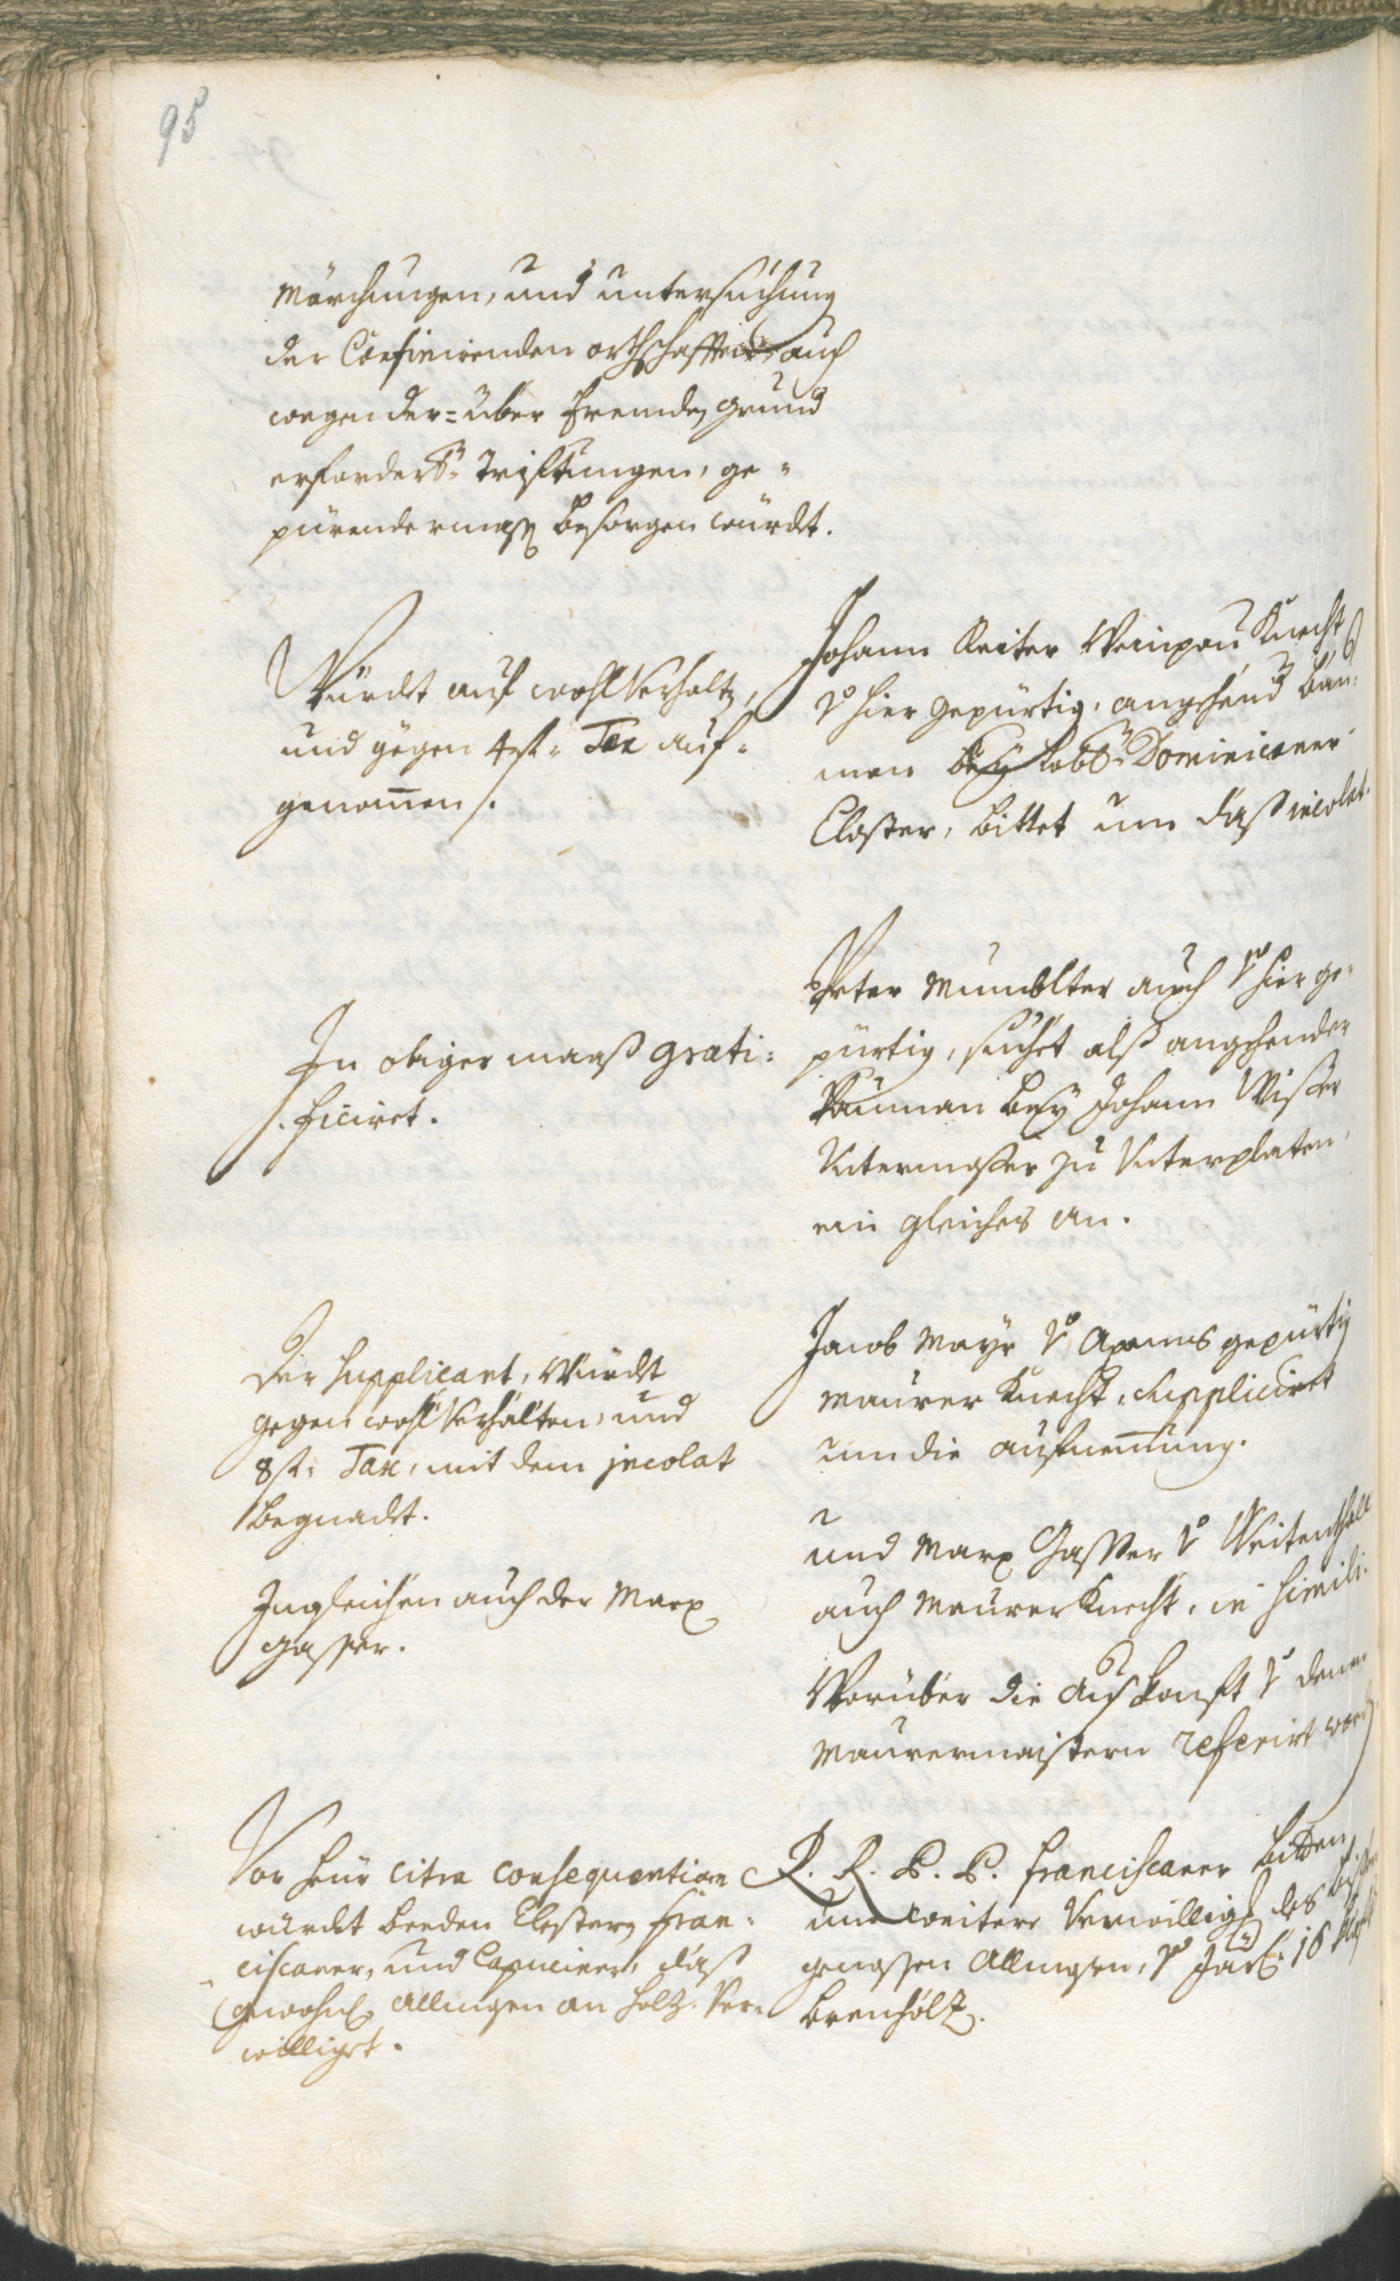 95
Märchungen, und untersuchung
der Confinirenden orthschafften, auch
wegen der= über frembden grund
erforderl: Trifftungen, ge=
pürendermassen besorgen würdt.
Würdt auf wohl Verhalten,
und gegen 4 fl: Tax auf=
genommen /.
Johann Reiter Weinpau Knecht
v hier gepürtig, angehend bau=
man bey löbl: Dominicaner
Closter, bittet um dass incolat.
In obiger maass grati=
ficiret.
Peter Mumblter auch v hier ge=
pürtig, suchet alss angehender
Pauman bey Johann Wisser
Untermosser zu Unterplaten
ein gleiches an.
Der supplicant, Würdt
gegen wohl Verhalten, und
8 fl: Tax, mit dem jncolat
begnadt.
Jacob Mayr v Axams gepürtig
Maurer Knecht, suppliciret
um die aufnemung.
Ingleichen auch der Marx
Gasser.
und Marx Gasser v Weitenthall
auch Maurer Knecht, in simili.
Worüber die auskonfft v denen
Maurermaistern referirt worden
Vor heür citra consequentiam
würdet beeden Clöstern Fran=
ciscaner, und Capuciner, dass
gewohnl: Allmosen an holz Ver=
williget.
R. R. P. P. Franciscaner bitten
um weitere Verwilligung des bisher
genossen Allmosen, v Järl: 16 klafter
brenholz.